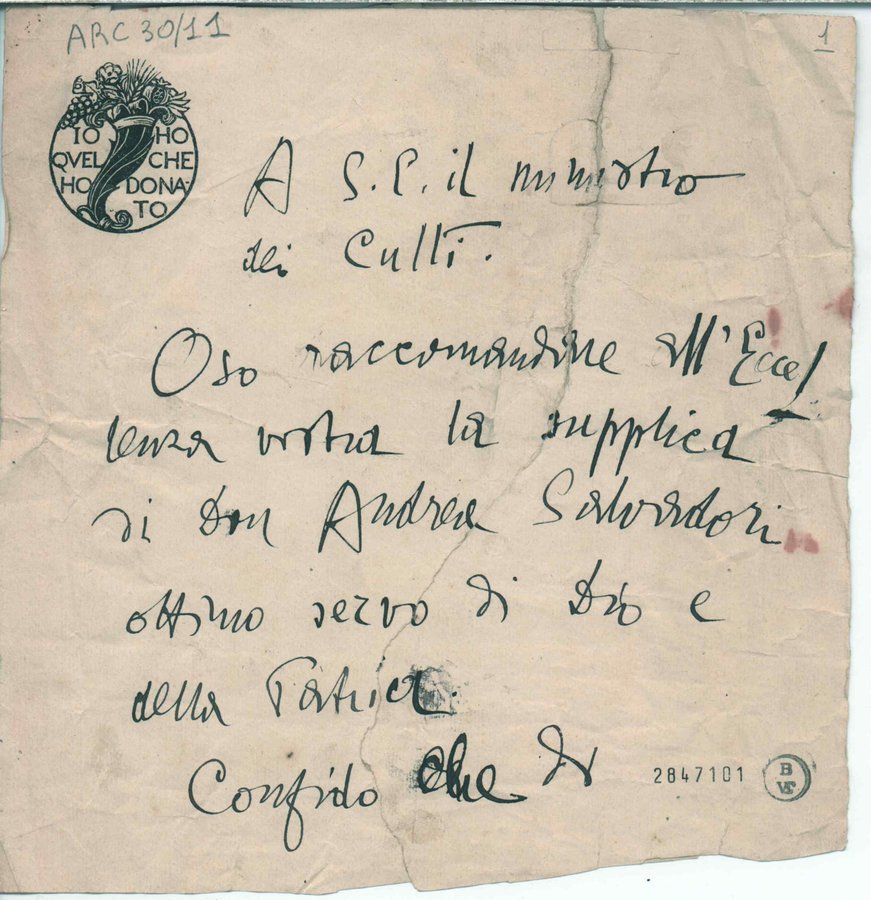 ARC 30/11
1
IO HO
QVEL CHE
HO DONA-
TO
A S. E. il ministro
dei Culti.
Oso raccomandare all'Eccel
lenza vostra la supplica
di Don Andrea Salvadori
ottimo servo di Dio e
della Patria.
Confido che
2847101
B